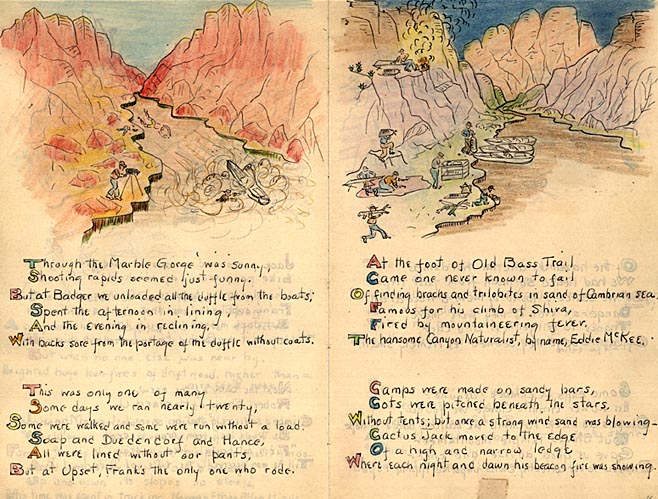 Through the Marble Gorge was sunny,
Shooting rapids seemed just funny.
But at Badger we unloaded all the duffle from the boats;
Spent the afternoon in lining,
And the evening in reclining,
With backs sore from the portage of the duffle without coats.
This was only one of many
Some days we ran nearly twenty,
Some were walked and some were run without a load.
Soap and Duedendorf and Hance,
All were lined without our pants,
But at Upset, Frank's the only one who rode.
At the foot of Old Bass Trail
Came one never known to fail
Of finding brachs and trilobites in sand of Cambrian sea.
Famous for his climb of Shiva,
Fired by mountaineering fever.
The hansome Canyon Naturalist, by name, Eddie McKee.
Camps were made on sandy bars,
Cots were pitched beneath the stars,
Without tents; but once a strong wind sand was blowing—
Cactus Jack moved to the edge
Of a high and narrow ledge
Where each night and dawn his beacon fire was showing.